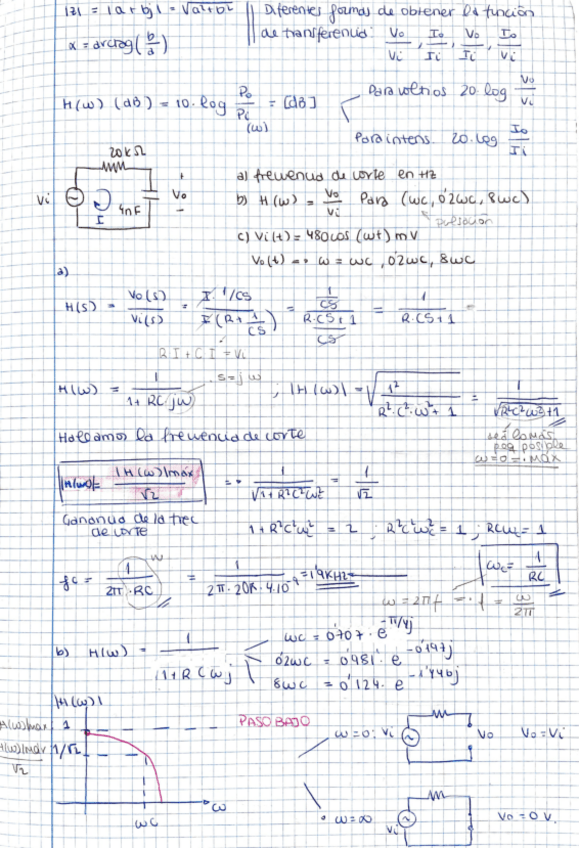 |z| = |a + bj| = √a²+b²
α = arctag(b/a)
Diferentes formas de obtener la función
de transferencia: Vo/Vi, Io/Ii, Vo/Ii, Io/Vi
H(ω) (dB) = 10·log Po/Pi = [dB]
(ω)
Para voltios 20·log Vo/Vi
Para intens. 20·log Io/Ii
20KΩ
Vi
I
4nF
+
Vo
-
a) frecuencia de corte en Hz
b) H(ω) = Vo/Vi Para (ωc, 0'2ωc, 8ωc)
pulsación
c) Vi(t) = 480cos(ωt) mV
Vo(t) = ω = ωc, 0'2ωc, 8ωc
a)
H(s) = Vo(s)/Vi(s) = I·1/CS / I(R+1/CS) = 1/CS / R·CS+1/CS = 1/R·CS+1
RI + CI = Vi
H(ω) = 1/1+RC·jω ; |H(ω)| = √1²/R²·C²·ω²+1 = 1/√R²C²ω²+1
s=jω
Hallamos la frecuencia de corte
será lo más
peq posible
ω=0 = MÁX
|H(ω)| = |H(ω)|máx/√2 = 1/√1+R²C²ωc² = 1/√2
Ganancia de la frec
de corte
1+R²C²ωc² = 2 ; R²C²ωc² = 1 ; RCωc = 1
fc = 1/2π·RC = 1/2π·20K·4·10⁻⁹ = 1'9KHz
ω
ωc = 1/RC
ω = 2πf = f = ω/2π
b) H(ω) = 1/1+RCωj
ωc = 0'707·e^-π/4j
0'2ωc = 0'981·e^-0'197j
8ωc = 0'124·e^-1'446j
|H(ω)|
|H(ω)|máx 1
|H(ω)|máx/√2 1/√2
PASO BAJO
ωc
ω
ω=0: Vi
Vo
Vo=Vi
ω=∞
Vi
Vo = 0 V.